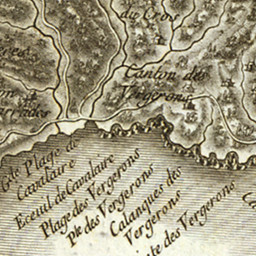 du Crois
Canton des
Vergerons
Plage de
Cavalaire
Eceuil de Cavalaire
Plage des Vergerons
Pte des Vergerons
Calanques des
Vergerons
des Vergerons